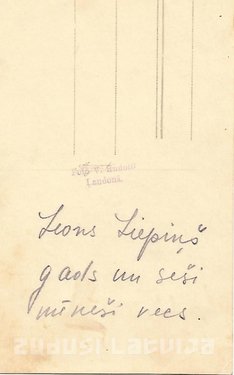 Foto V. Rudzīt
Ļaudonā
Leons Liepiņš
gads un seši
mēneši vecs.
zudusi latvija